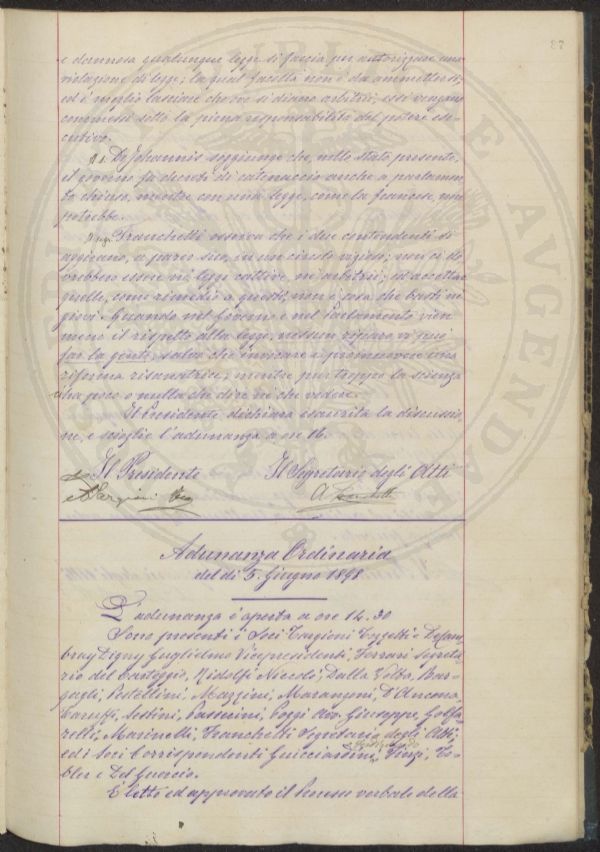 87
e dannosa qualunque legge si faccia per autorizzare una
violazione di legge; la qual facoltà non è da ammettersi;
ed è meglio lasciare che se si diano arbitrii, essi vengano
commessi sotto la piena responsabilità del potere ese-
cutivo.
De Johannis soggiunge che, nello stato presente,
il governo fa decreti di catenaccio anche a parlamen
to chiuso, mentre con una legge, come la francese, non
potrebbe.
Franchetti osserva che i due contendenti si
aggirano, a parer suo, in un circolo vizioso; non ci do
vrebbero essere nè leggi cattive, nè arbitrii; ed accettar
quelle, come rimedio a questi, non è cosa che basti nè
giovi. Quando nel Governo e nel Parlamento vien
meno il rispetto alla legge, nessun riparo vi può
far la gente, salvo che invocare e promuovere una
riforma risanatrice; mentre pur troppo la scienza
ha poco o nulla che dire nè che vedere.
Il Presidente dichiara esaurita la discussio
ne, e scioglie l'adunanza a ore 16.
Il Presidente Il Segretario degli Atti
Adunanza Ordinaria
del dì 5. Giugno 1898
L'adunanza è aperta a ore 14.30
Sono presenti i Soci Targioni Tozzetti e De Cam
bray Digny Guglielmo Vicepresidenti, Ferrari Segreta
rio del Carteggio, Ridolfi Niccolò, Dalla Volta, Bar-
gagli, Pestellini, Mazzini, Marangoni, D'Ancona,
Caruffi, Sestini, Passerini, Pozzi Avv. Giuseppe, Golfa
relli, Marinelli, Franchetti Segretario degli Atti;
ed i Soci Corrispondenti Guicciardini, Finzi, To-
bler e Del Guercio.
È letto ed approvato il Processo verbale della